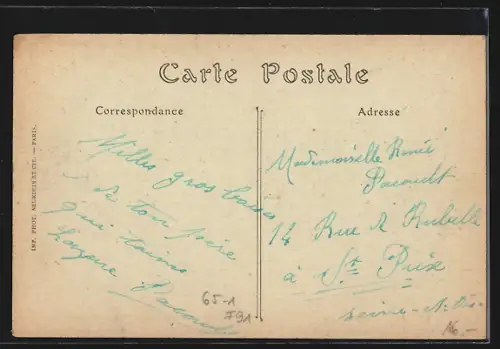 Carte Postale
Correspondance
Adresse
IMP. PHOT. NEURDEIN ET CIE. — PARIS.
Milles gros baises
de ton père
qui t'aime
Pacault
65-1
791
Mademoiselle Renée
Pacault
14 Rue de Rubelle
à St Prix
Seine-et-Oise
16,-